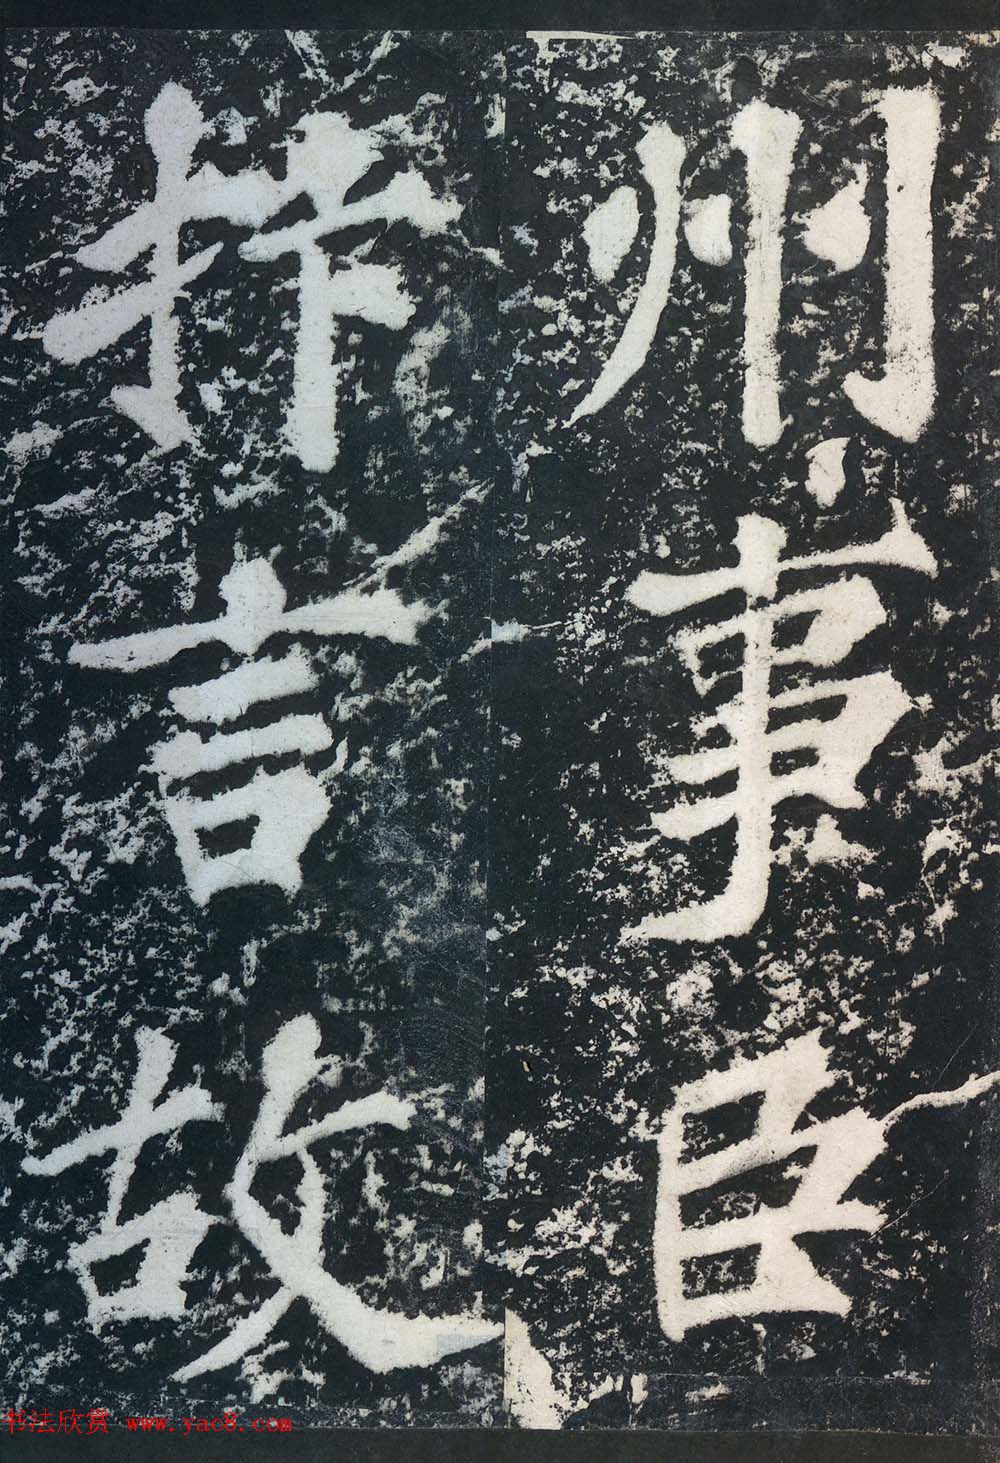 州事臣
抃言故
书法欣赏 www.yac8.com